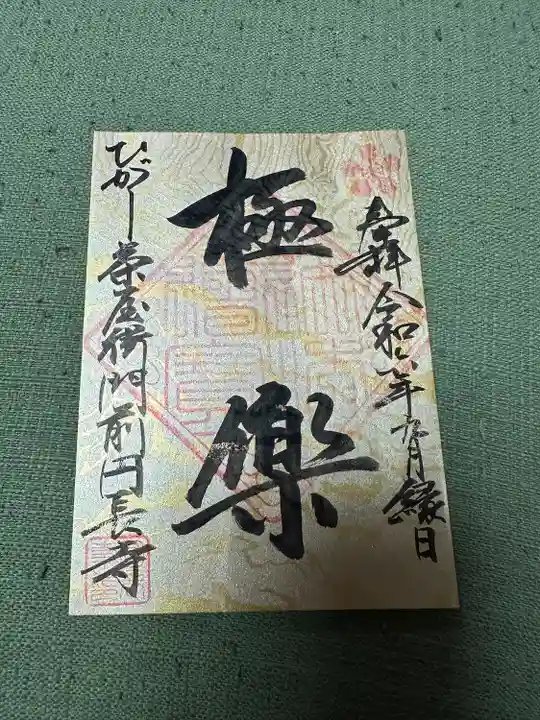 奉拝 令和六年九月縁日
極楽
ひがし茶屋街門前円長寺